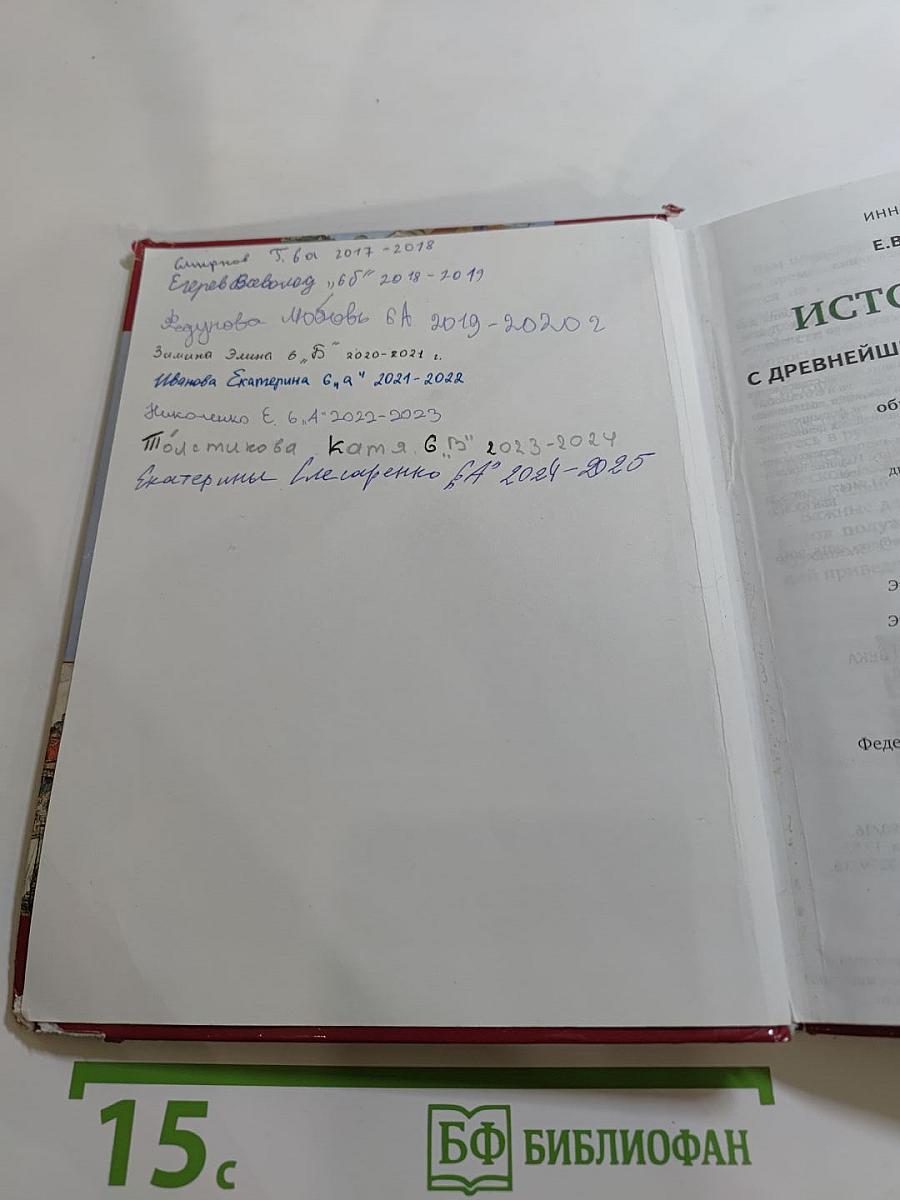 Смирнов Г. 6а 2017-2018
Егеров Всеволод „6б" 2018-2019
Федунова Любовь 6А 2019-2020г
Зимина Элина 6 „Б" 2020-2021 г.
Иванова Екатерина 6„а" 2021-2022
Николенко Е. 6„А" 2022-2023
Толстикова Катя 6„В" 2023-2024
Екатерины Слесаренко „6А" 2024-2025
ИНН
Е.В
ИСТО
С ДРЕВНЕЙШ
Э
Э
Феде
15 с
БФ БИБЛИОФАН